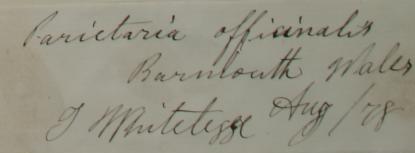 Parietaria officinalis
Barmouth Wales
T Whitelegge Aug/78